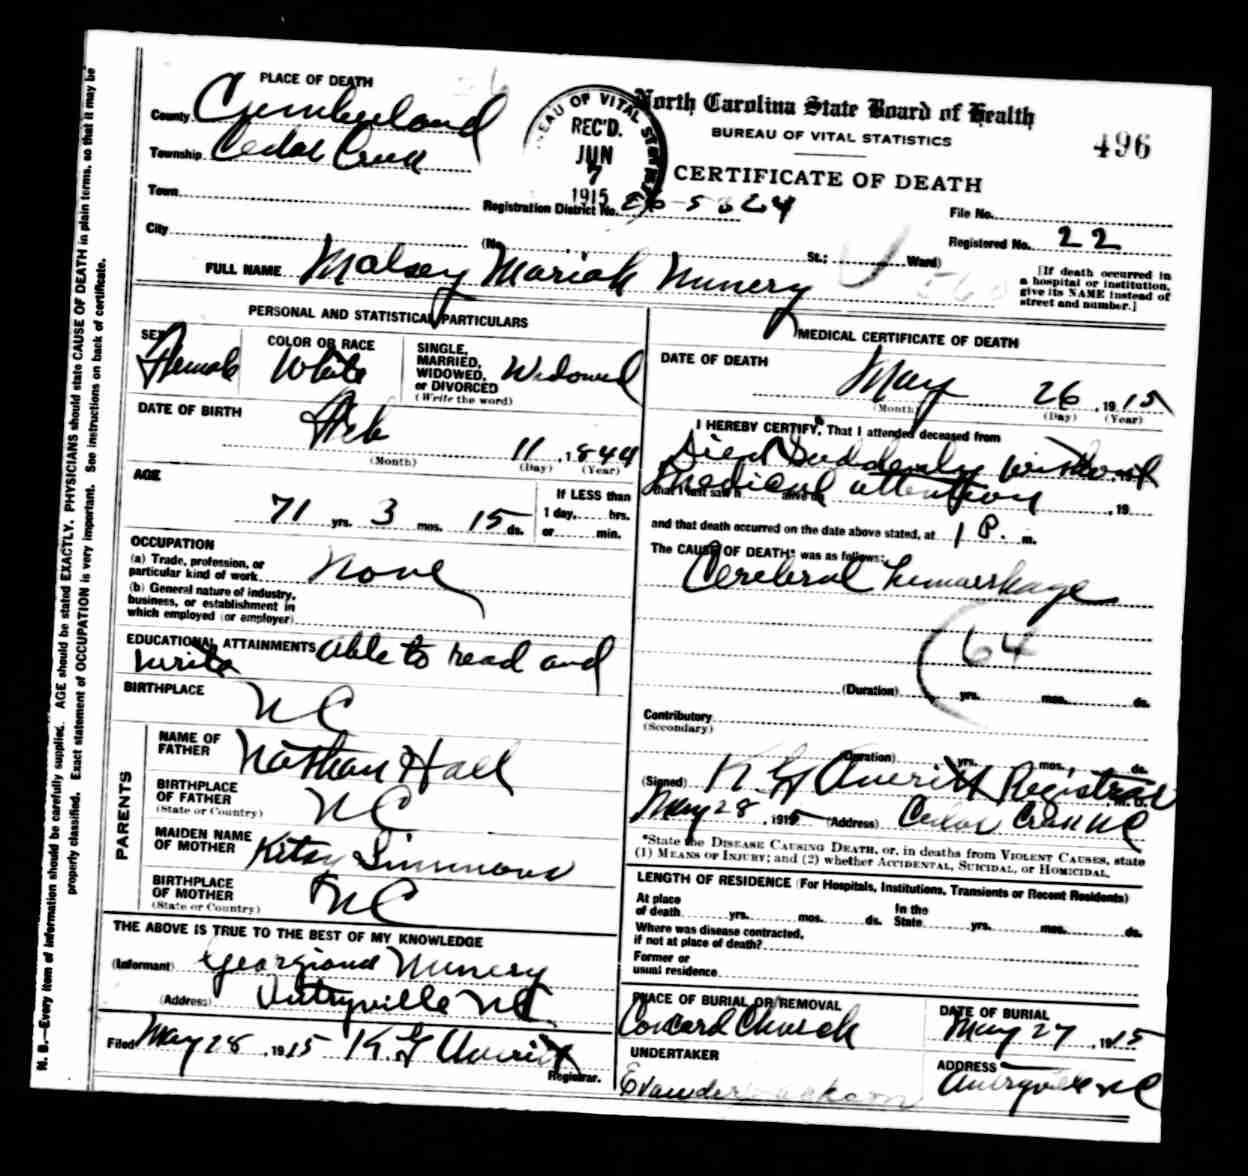 North Carolina State Board of Health
BUREAU OF VITAL STATISTICS
CERTIFICATE OF DEATH
496
BUREAU OF VITAL STATISTICS
REC'D.
JUN
7
1915
PLACE OF DEATH
County Cumberland
Township Cedar Creek
Town
Registration District No. 26-5324
File No.
Registered No. 22
City (No. St.; Ward)
[If death occurred in a hospital or institution, give its NAME instead of street and number.]
FULL NAME Malsey Mariah Nunery
PERSONAL AND STATISTICAL PARTICULARS
SEX Female
COLOR OR RACE White
SINGLE, MARRIED, WIDOWED, or DIVORCED (Write the word) Widowed
DATE OF BIRTH
Feb 11, 1844
(Month) (Day) (Year)
AGE
71 yrs. 3 mos. 15 ds.
If LESS than 1 day, hrs. or min.
OCCUPATION
(a) Trade, profession, or particular kind of work None
(b) General nature of industry, business, or establishment in which employed (or employer)
EDUCATIONAL ATTAINMENTS able to read and
write
BIRTHPLACE NC
PARENTS
NAME OF FATHER Nathan Hall
BIRTHPLACE OF FATHER (State or Country) NC
MAIDEN NAME OF MOTHER Kitsy Simmons
BIRTHPLACE OF MOTHER (State or Country) NC
THE ABOVE IS TRUE TO THE BEST OF MY KNOWLEDGE
(Informant) Georgiana Nunery
(Address) Autryville NC
Filed May 28, 1915 K. G. Averitt
Registrar.
MEDICAL CERTIFICATE OF DEATH
DATE OF DEATH
May 26, 1915
(Month) (Day) (Year)
I HEREBY CERTIFY, That I attended deceased from
Died Suddenly without
that I last saw h alive on , 19
Medical attention
and that death occurred on the date above stated, at 1 P. m.
The CAUSE OF DEATH* was as follows:
Cerebral hemorrhage
64
(Duration) yrs. mos. ds.
Contributory
(Secondary)
(Duration) yrs. mos. ds.
(Signed) K. G. Averitt Registrar M. D.
May 28, 1915 (Address) Cedar Creek NC
*State the DISEASE CAUSING DEATH, or, in deaths from VIOLENT CAUSES, state
(1) MEANS OF INJURY; and (2) whether ACCIDENTAL, SUICIDAL, or HOMICIDAL.
LENGTH OF RESIDENCE (For Hospitals, Institutions, Transients or Recent Residents)
At place of death yrs. mos. ds. In the State yrs. mos. ds.
Where was disease contracted, if not at place of death?
Former or usual residence
PLACE OF BURIAL OR REMOVAL
Concord Church
DATE OF BURIAL
May 27, 1915
UNDERTAKER
Evander
ADDRESS
Autryville NC
N. B.—Every item of information should be carefully supplied. AGE should be stated EXACTLY. PHYSICIANS should state CAUSE OF DEATH in plain terms, so that it may be
properly classified. Exact statement of OCCUPATION is very important. See instructions on back of certificate.